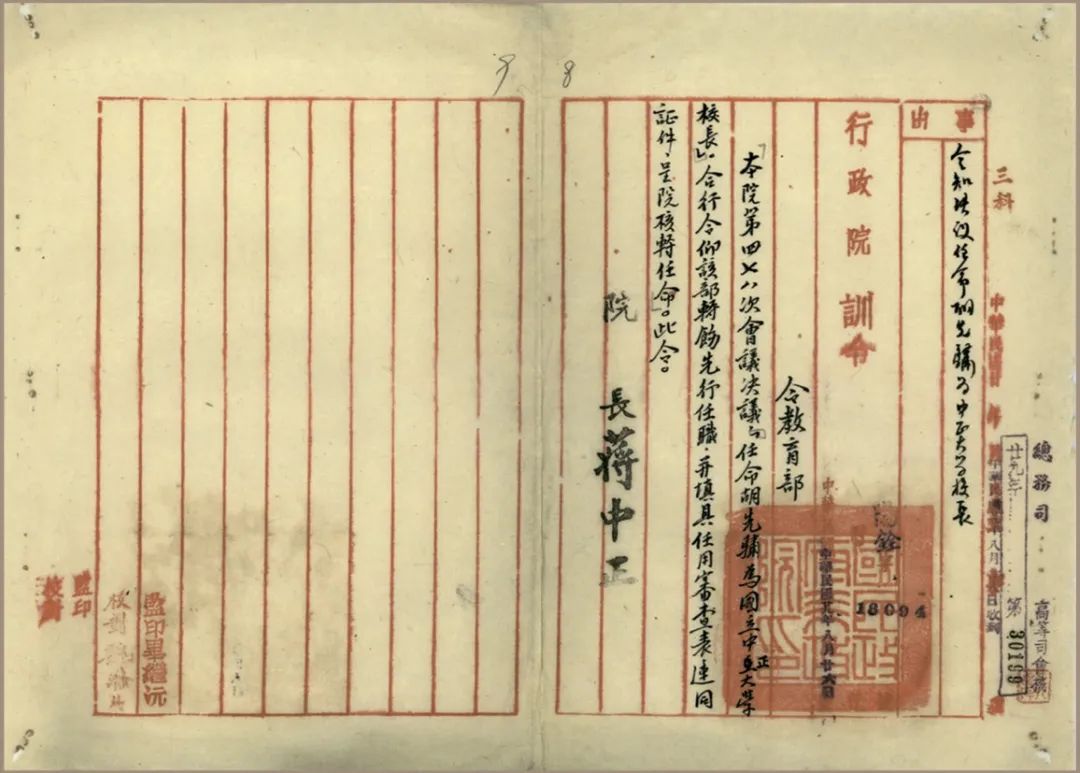 三科
總務司
高等司會
廿九年
第30199
事由
令知決議任命胡先驌為中正大學校長
行政院訓令
陽銓字
18094
中華民國廿九年八月廿六日
令教育部
「本院第四七八次會議決議『任命胡先驌為國立中正大學
校長』。合行令仰該部轉飭先行任職，并填具任用審查表連同
証件，呈院核轉任命。」此令。
院長蔣中正
8
9
監印
校對
監印畢繼沅
校對